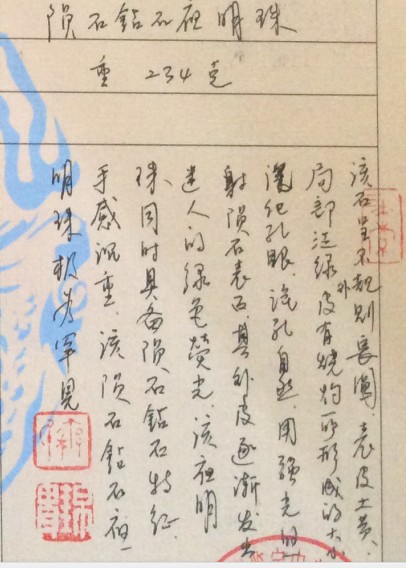 陨石钻石夜明珠
重 234克
该石呈不规则长圆,表皮土黄,
局部泛绿,外皮有烧灼所形成的大小
孔眼,孔自然,用强光
射陨石表面,其外皮逐渐发出
迷人的绿色荧光,该夜明
珠同时具备陨石钻石特征,
手感沉重,该陨石钻石夜
明珠极为罕见